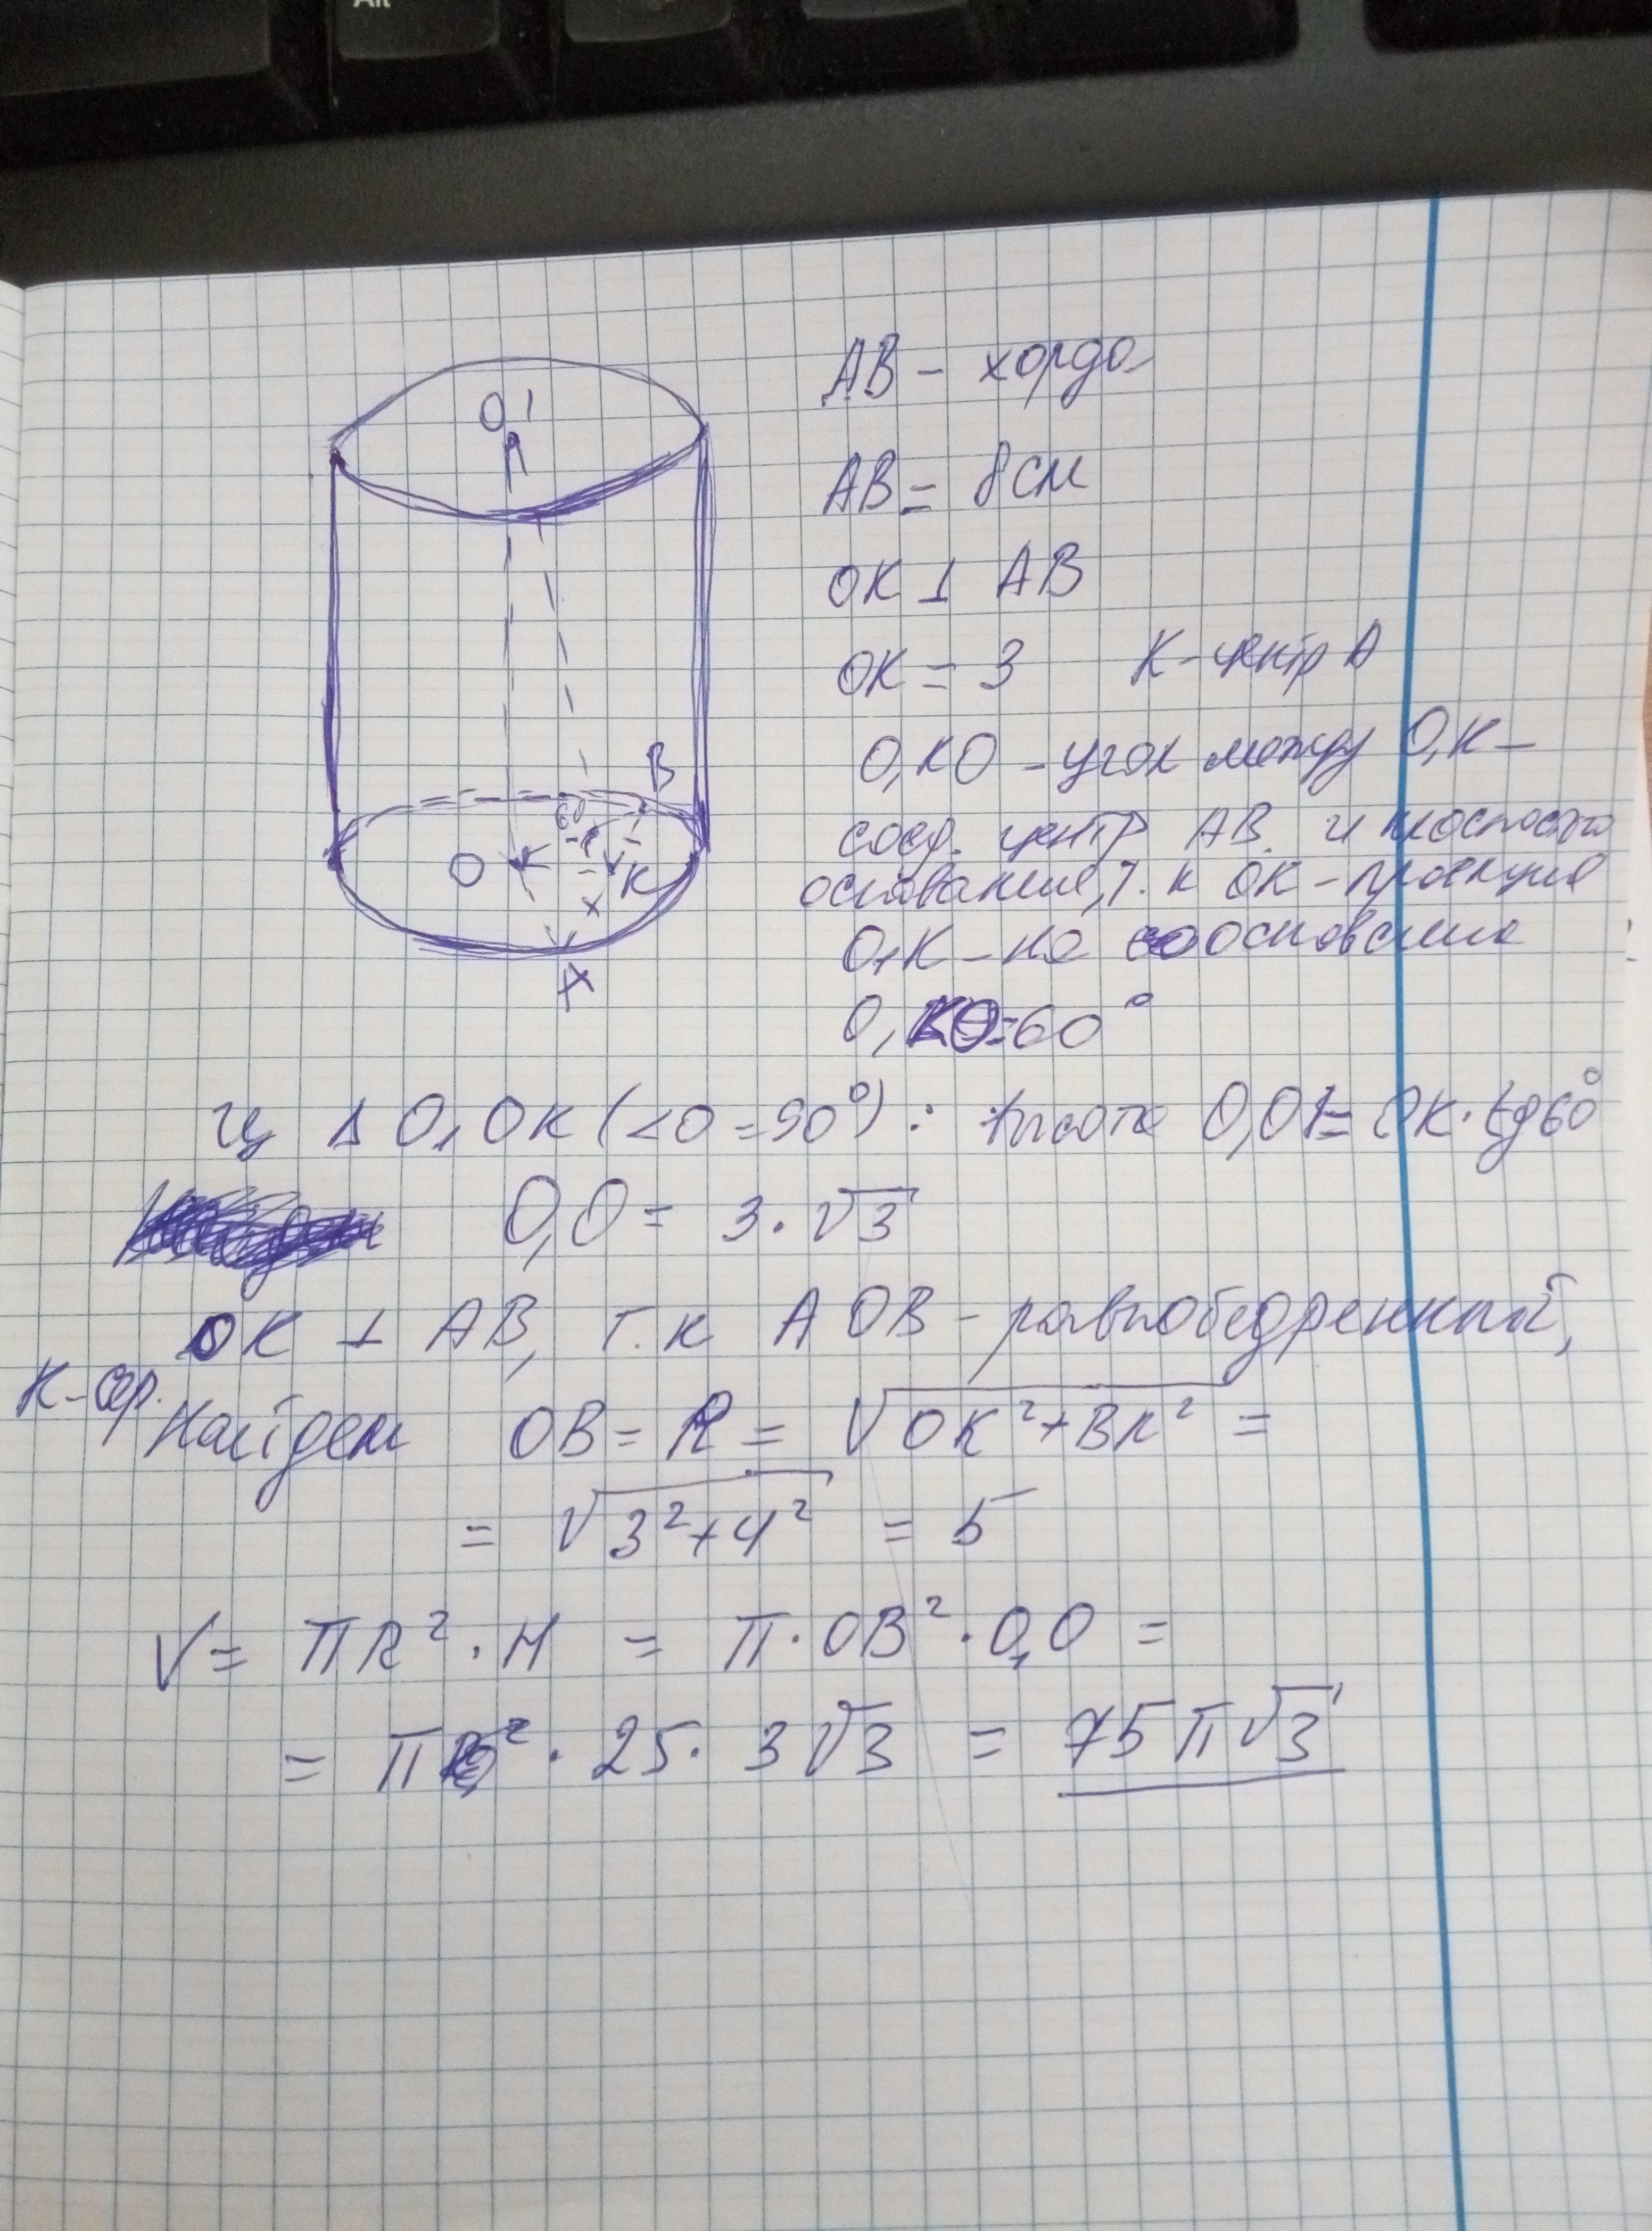 Alt
O1
B
60
O
K
A
AB - хорда
AB = 8 см
OK ⊥ AB
OK = 3 K - центр A
O₁KO - угол между O₁K -
соед. центр AB и плоскостью
основания, т. к OK - проекция
O₁K - на основание
O₁KO = 60°
Из Δ O₁OK (<O = 90°) : высота O₁O = OK · tg 60°
O₁O = 3 · √3
OK ⊥ AB, т. к AOB - равнобедренный,
K - сер.
Найдем OB = R = √(OK² + BK²) =
= √(3² + 4²) = 5
V = πR² · H = π · OB² · O₁O =
= π · 25 · 3√3 = 75π√3